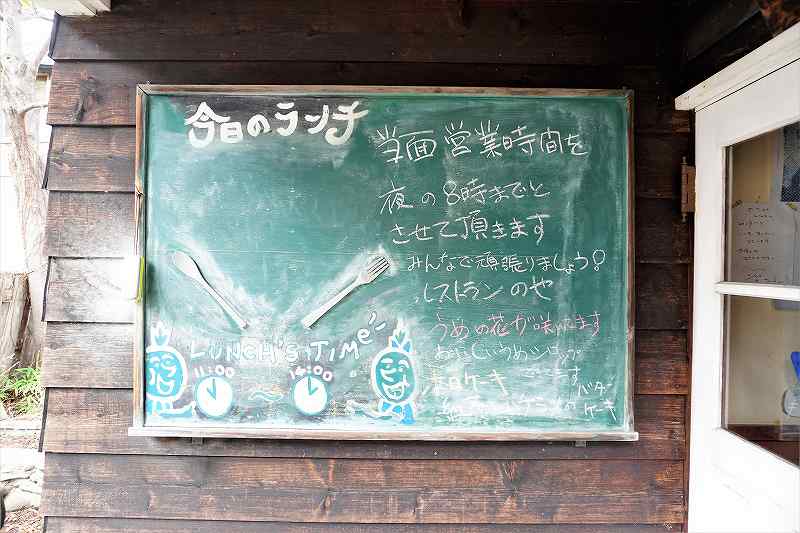 今日のランチ
当面営業時間を
夜の8時までと
させて頂きます
みんなで頑張りましょう!
レストランのや
うめの花が咲いてます
おいしいうめシロップ
ございます
ケーキ
バター
ケーキ
LUNCH'S TIME
11:00 ~ 14:00